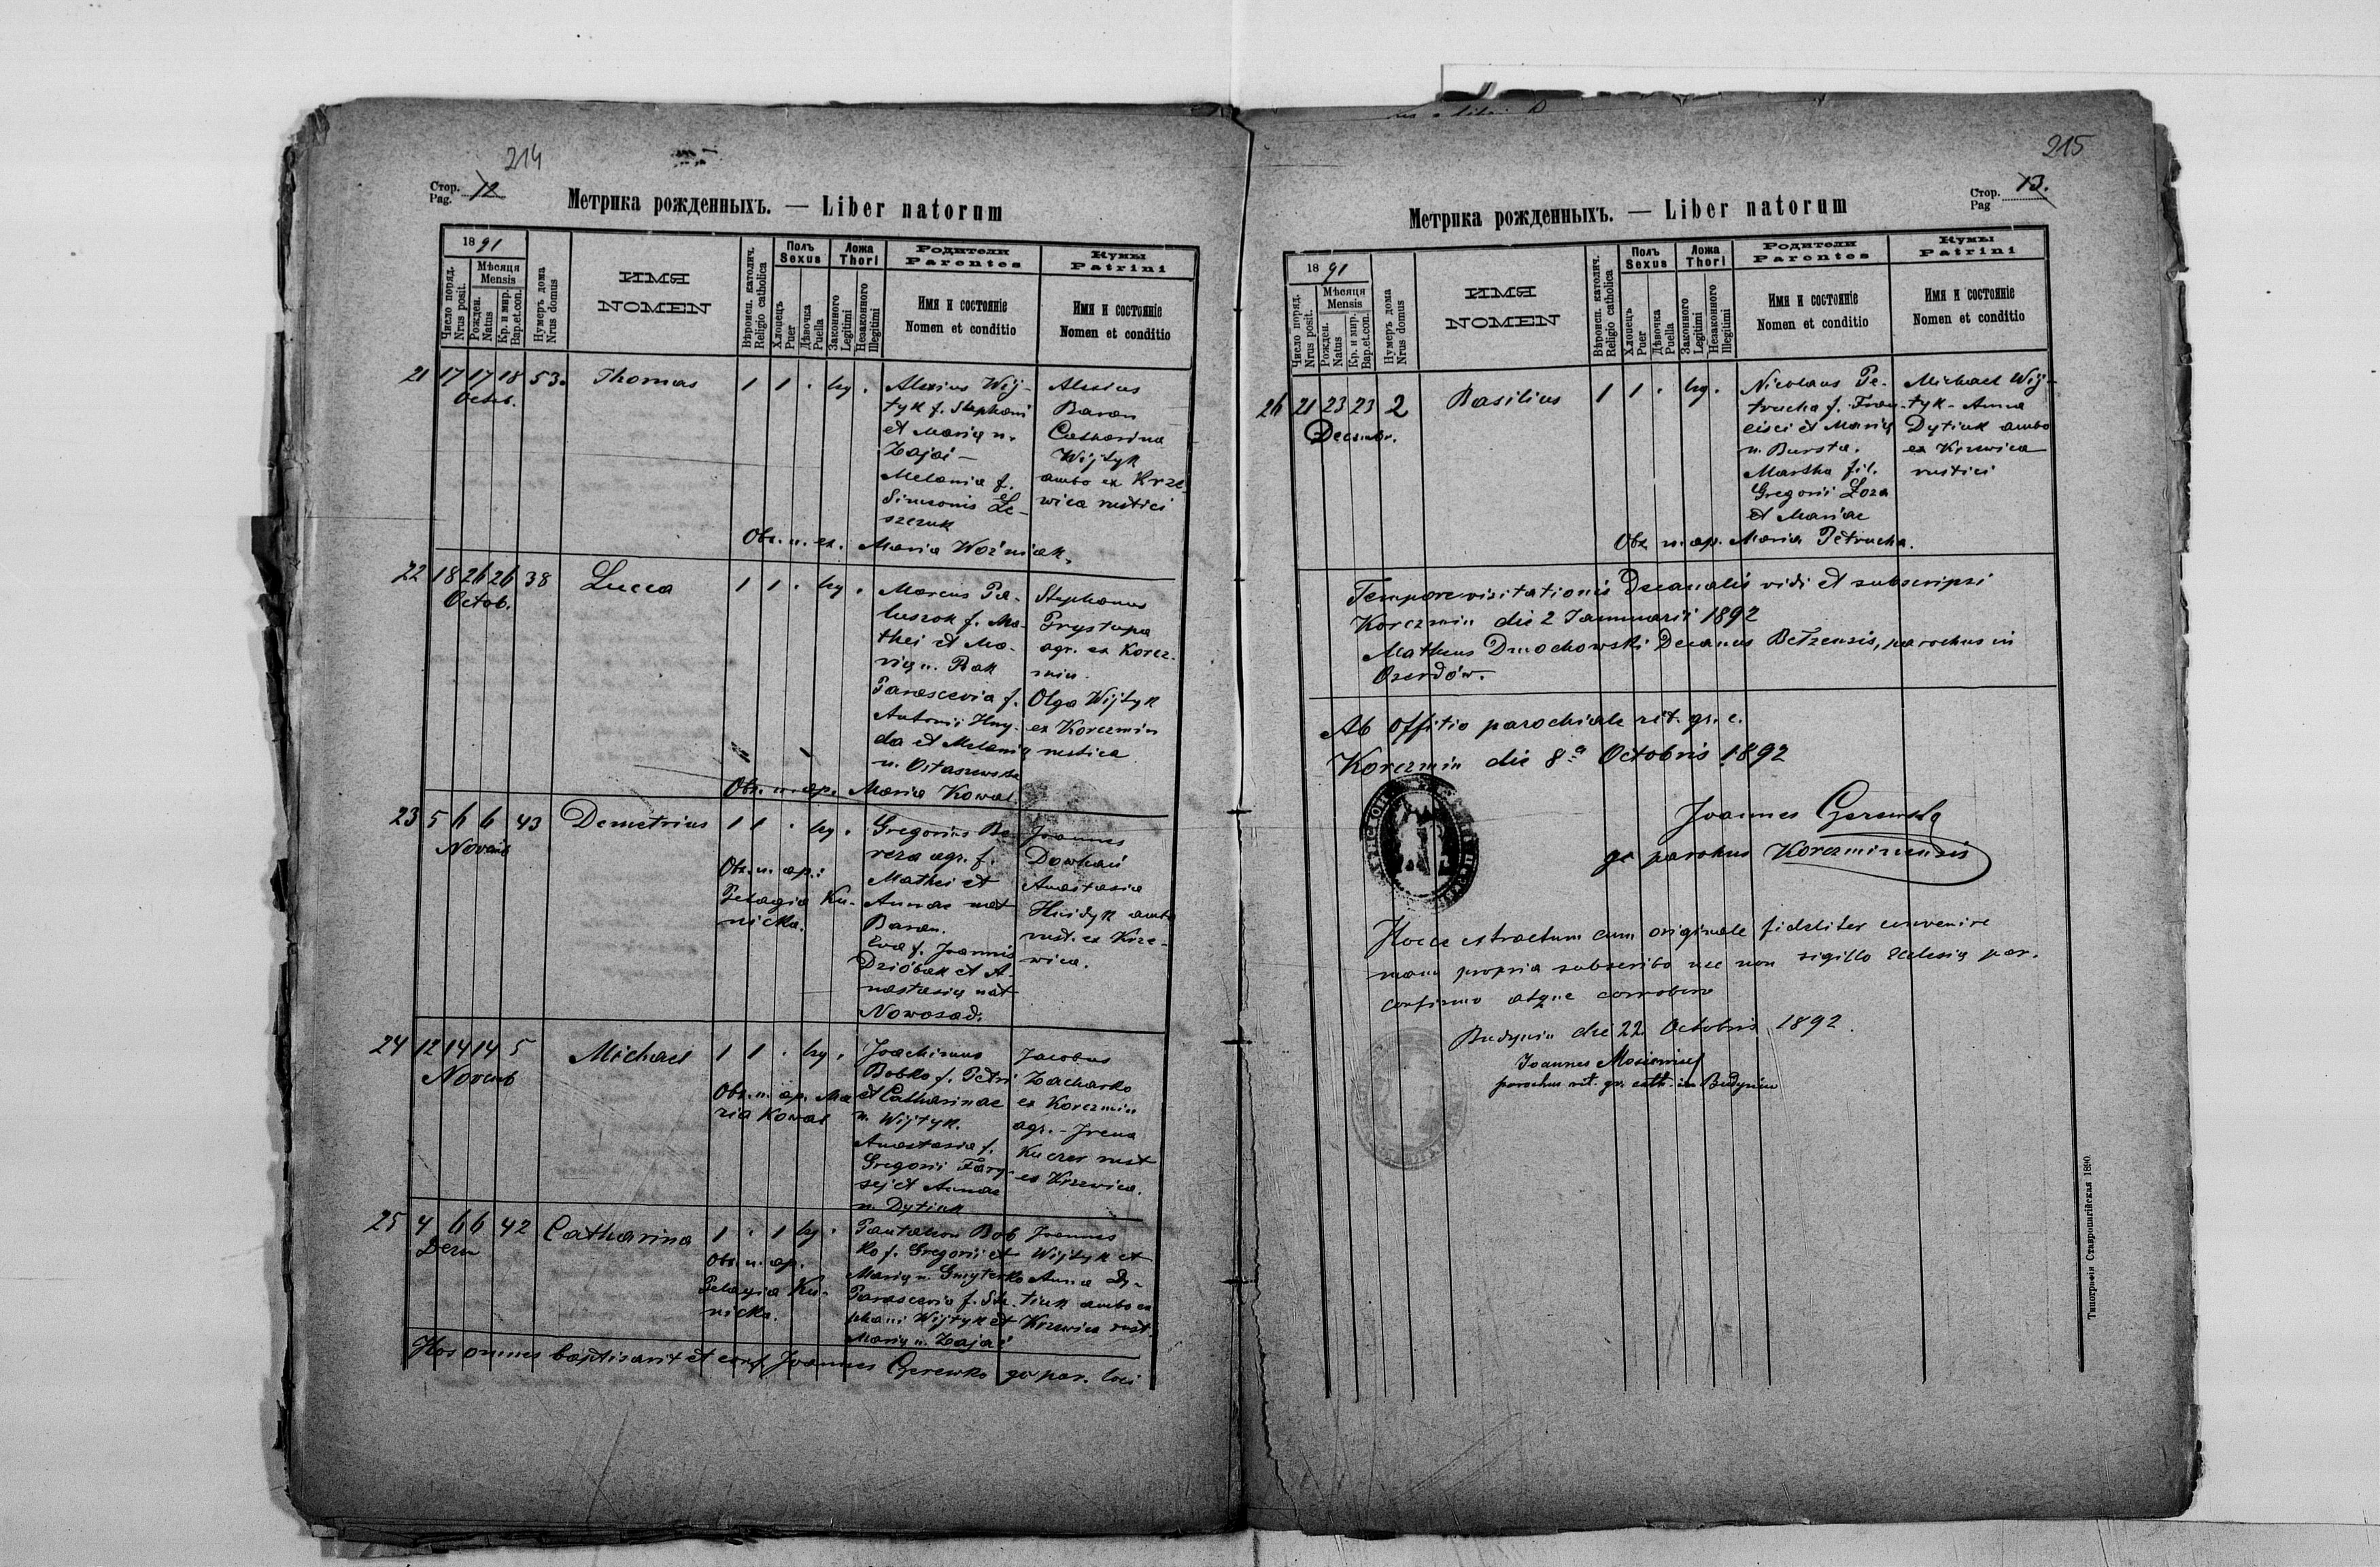 214
Стор.
Pag. 12
Метрика рожденныхъ. — Liber natorum
1891
Число поряд.
Nrus posit.
Мѣсяця
Mensis
Рожден.
Natus
Кр. и мир.
Bap.et.con.
Нумеръ дома
Nrus domus
ИМЯ
NOMEN
Вѣроисп. католич.
Religio catholica
Полъ
Sexus
Хлопецъ
Puer
Дѣвочка
Puella
Ложа
Thori
Законного
Legitimi
Незаконного
Illegitimi
Родители
Parentes
Имя и состояніе
Nomen et conditio
Кумы
Patrini
Имя и состояніе
Nomen et conditio
21 17 17 18 53.
Octob.
Thomas
1 1 . leg .
Alexius Wij-
tyk f. Stephani
et Marię n.
Zajać –
Melania f.
Simeonis Le-
szczuk
Alexius
Baran
Catharina
Wijtyk
ambo ex Krze-
wica rustici
Obs. n. ex. Maria Woźniak.
22 18 26 26 38
Octob.
Lucca
1 1 . leg .
Marcus Pa-
luszok f. Ma-
thei et Ma-
rię n. Bak
Parascevia f.
Antonii Hny-
da et Melanię
n. Ostaszewska
Stephanus
Prystupa
agr. ex Korcz-
min.
Olga Wijtyk
ex Korczmin
rustica
Obs. n. ap. Maria Kowal.
23 5 6 6 43
Novemb
Demetrius
1 1 . leg .
Obs. n. ap.:
Pelagia Ku-
nicka.
Gregorius Be-
reza agr. f.
Mathei et
Annae nat
Baran.
Eva f. Joannis
Dzióbak et A-
nastasię nat
Nowosad.
Joannes
Dowhań
Anastasia
Hnidyk ambo
rust. ex Krze-
wica.
24 12 14 14 5
Novemb
Michael
1 1 . leg .
Obs. n. ap. Ma
ria Kowal
Joachimus
Bobko f. Petri
et Catharinae
n. Wijtyk.
Anastasia f.
Gregorii Fary-
sej et Annae
n. Dytiuk
Jacobus
Zacharko
ex Korczmin
agr. – Irena
Kuczer rust
ex Krzewica.
25 4 6 6 42
Catharina
1 . 1 leg .
Obs. n. ap.
Pelagia Ku-
nicka.
Pantaleon Bob
ko f. Gregorii et
Marię n. Gmyterko
Parascevia f. Ste-
phani Wijtyk et
Marię n. Zajać
Joannes
Wijtyk et
Anna Dy-
tiuk ambo ex
Krzewica rust.
Hos omnes baptisavit et conf. Joannes par. loci
215
Стор.
Pag 13.
Метрика рожденныхъ. — Liber natorum
1891
Число поряд.
Nrus posit.
Мѣсяця
Mensis
Рожден.
Natus
Кр. и мир.
Bap.et.con.
Нумеръ дома
Nrus domus
ИМЯ
NOMEN
Вѣроисп. католич.
Religio catholica
Полъ
Sexus
Хлопецъ
Puer
Дѣвочка
Puella
Ложа
Thori
Законного
Legitimi
Незаконного
Illegitimi
Родители
Parentes
Имя и состояніе
Nomen et conditio
Кумы
Patrini
Имя и состояніе
Nomen et conditio
26 21 23 23 2
Decembr.
Basilius
1 1 . leg .
Nicolaus Pe-
trucha f. Fran-
cisci et Marię
n. Bursta.
Martha fil.
Gregorii Łoza
et Mariae
Michael Wij-
tyk – Anna
Dytiuk ambo
ex Krzewica
rustici
Obs n. ap. Maria Petrucha.
Tempore visitationis decanalis vidi et subscripsi
Korczmin die 2 Jannuarii 1892
Matheus Dmochowski Decanus Bełzensis, parochus in
Oserdów.
Ab offitio parochiale rit. gr. c.
Korczmin die 8ª Octobris 1892
Joannes
gr parohus Korczminensis
Hocce extractum cum originale fideliter convenire
manu propria subscribo nec non sigillo Ecclesię par.
confirmo atque corroboro
Budynin die 22 Octobris 1892.
Joannes
parochus rit. gr. cath. in Budynin
Типографія Ставропигійская 1890.